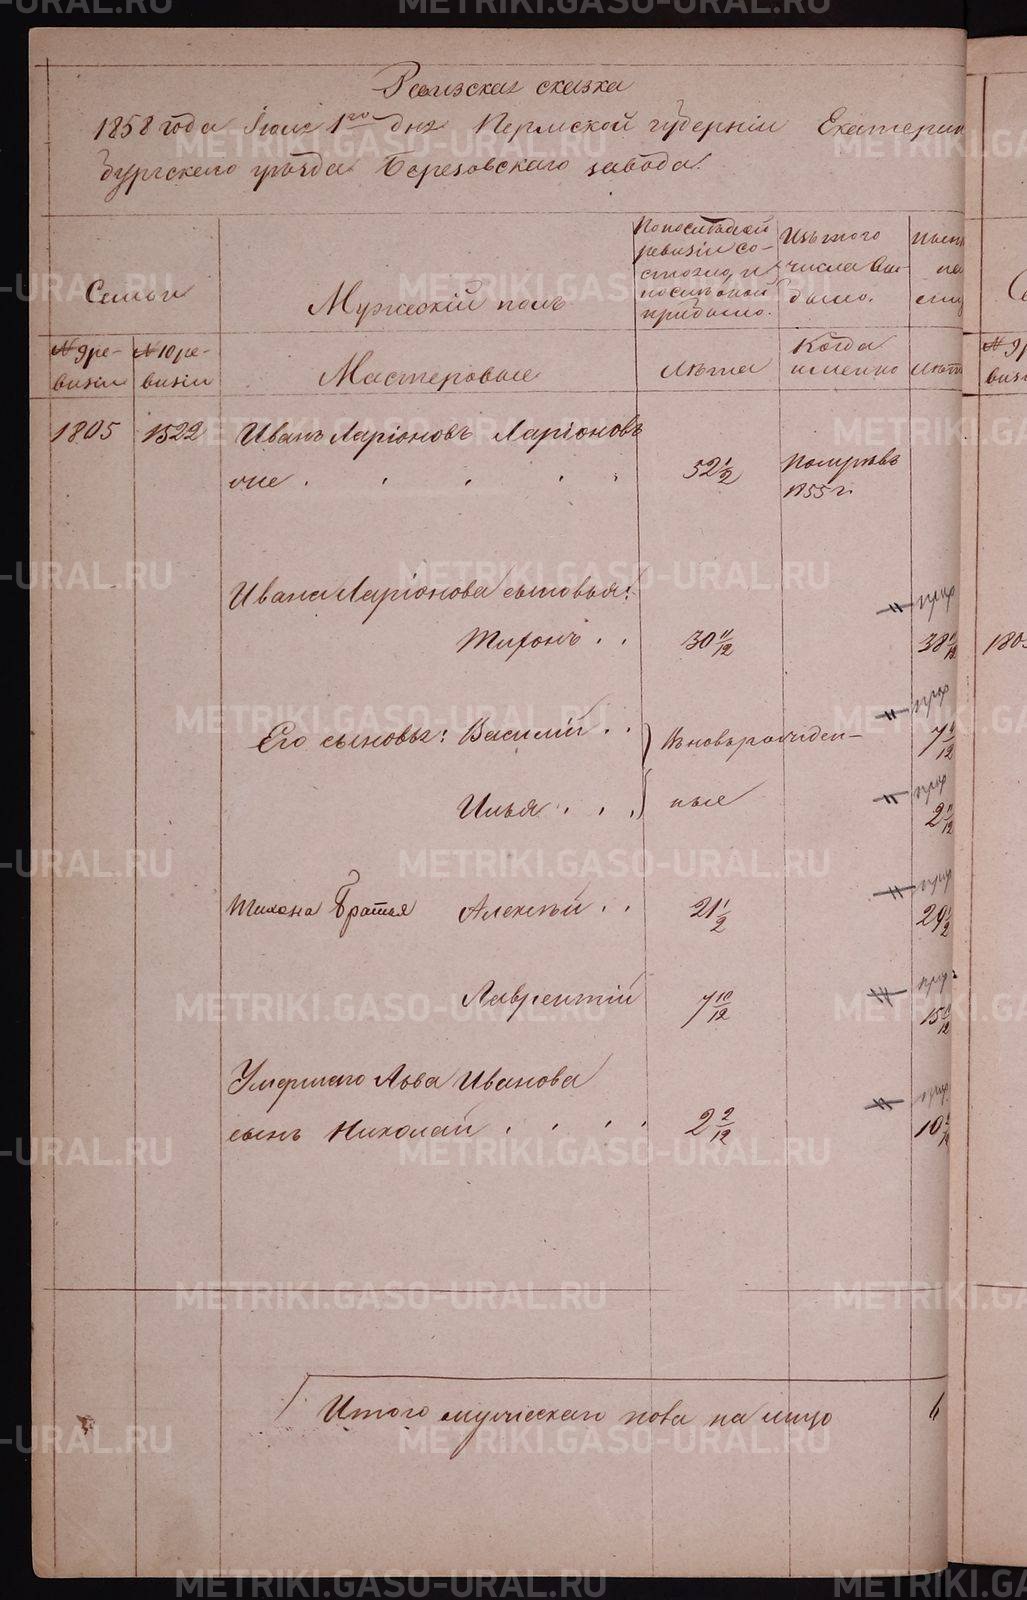 Ревизская сказка
1858 года Iюня 1го дня Пермской губернiи Екатерин
бургскаго уѣзда Березовскаго завода.
Семьи
Мужескiй полъ
По последней
ревизiи со-
стояло, и
послѣ оной
прибыло.
Изъ того
числа вы-
было.
№ 9 ре-
визiи
№ 10 ре-
визiи
Мастеровые
Лѣта
Когда
именно
Лѣта
№ 9 р
визi
1805 1522 Иванъ Ларiоновъ Ларiоновъ
52 1/2 Померъ въ
1855 г.
Ивана Ларiонова сыновья:
Тихонъ . . 30 11/12 38 11/12 180
Его сыновья: Василiй . . Вновьрожден-
7
12
Илья . . . ные
2 11/12
Тихона Братья Алексѣй . . 21 1/2 29 1/2
Лаврентiй 7 10/12 15
12
Умершаго Льва Иванова
сынъ Николай . . . . 2 2/12 10
Итого мужескаго пола на лицо 6
METRIKI.GASO-URAL.RU